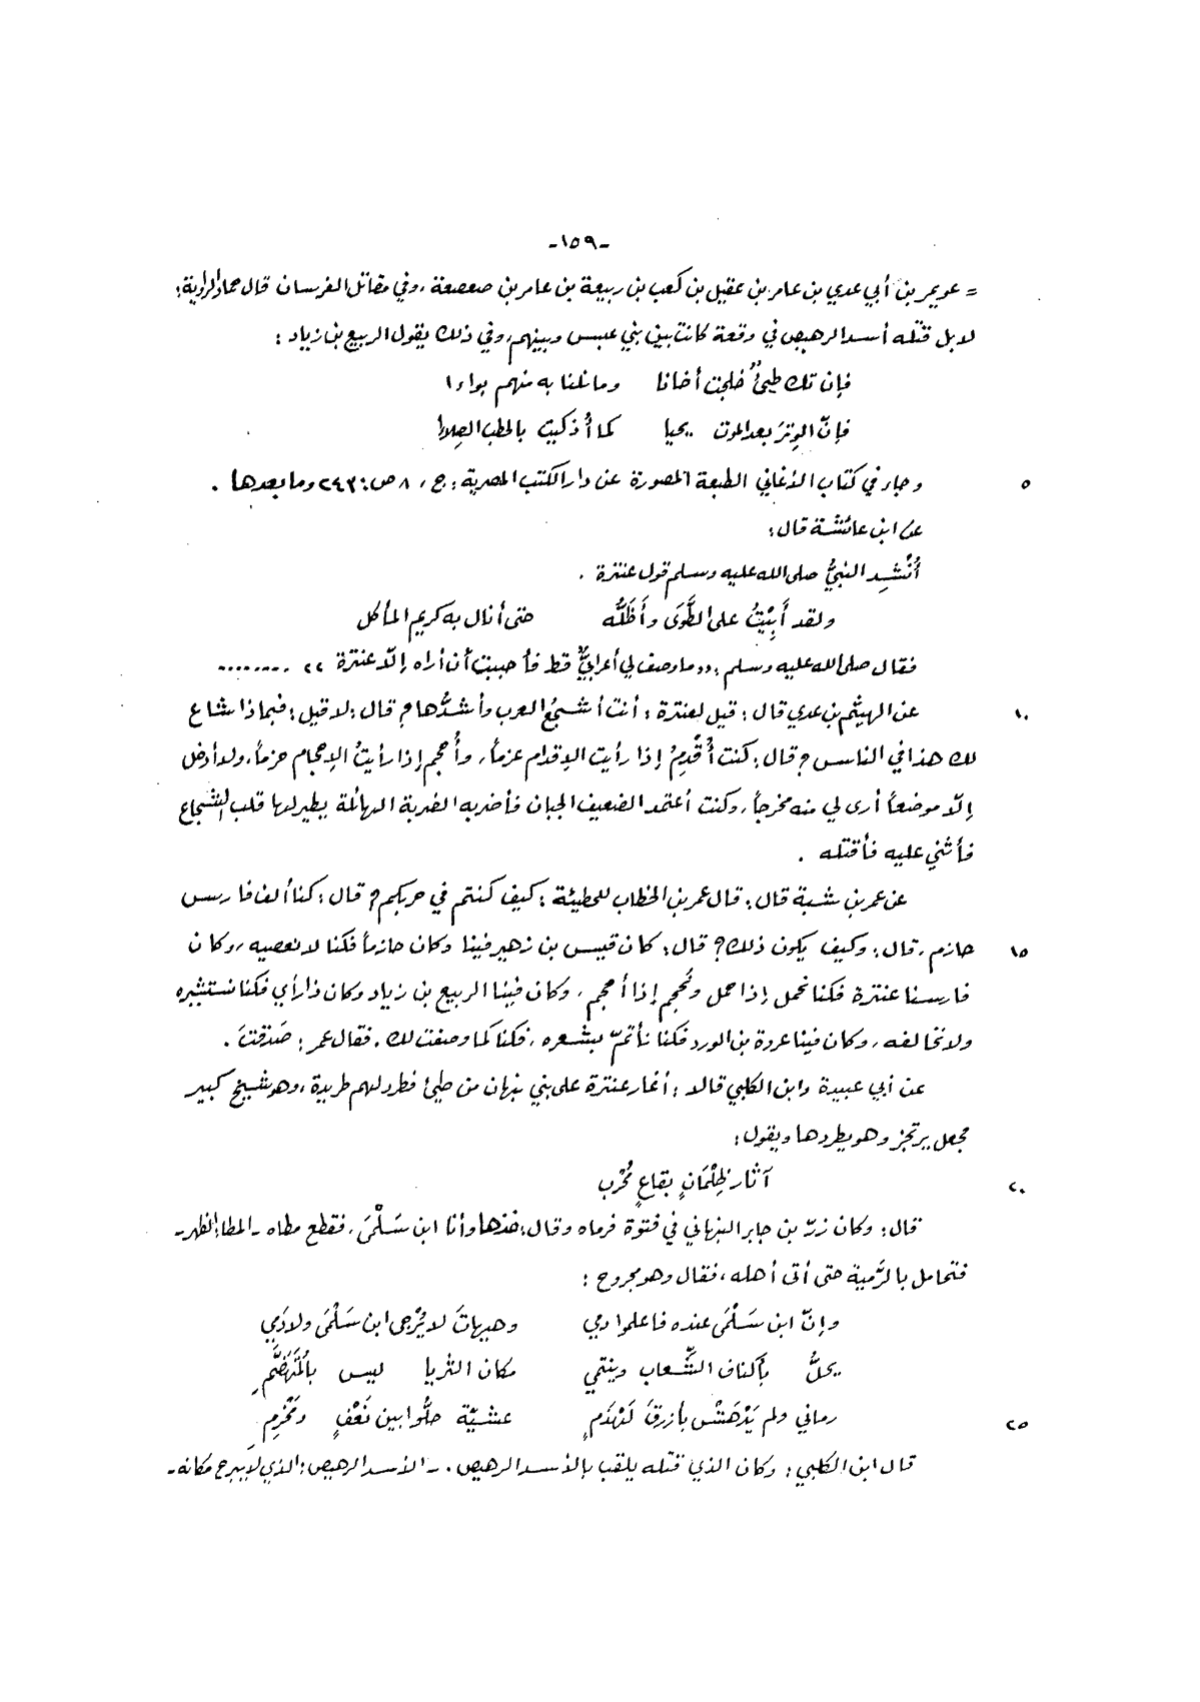 -١٥٩-
= عويمر بن أبي عدي بن عامر بن عقيل بن كعب بن ربيعة بن عامر بن صعصعة، وفي مقاتل الفرسان قال حماد الراوية:
لا بل قتله أسد الرهيص في وقعة كانت بين بني عبس وبينهم، وفي ذلك يقول الربيع بن زياد:
فإن تك طيئٌ خلجت أخانا وما نلنا به منهم بواءا
فإنّ الوِترَ بعد الموت يحيا كما أُذكيت بالحطب الصِلاءا
٥ وجاء في كتاب الأغاني الطبعة المصورة عن دار الكتب المصرية: ج، ٨ ص: ٢٤٣ وما بعدها.
عن ابن عائشة قال:
أُنْشِد النبيُّ صلى الله عليه وسلم قول عنترة.
ولقد أَبِيْتُ على الطَّوَى وأَظَلُّه حتى أنال به كريم المأكل
فقال صلى الله عليه وسلم: ,,ما وصف لي أعرابيٌّ قط فأحببت أن أراه إلّا عنترة ،، ........
١٠ عن الهيثم بن عدي قال: قيل لعنترة: أنت أشجعُ العرب وأشدُّها؟ قال: لا، قيل: فبماذا شاع
لك هذا في الناس؟ قال: كنت أُقْدِمُ إذا رأيت الإقدام عزماً، وأُحجم إذا رأيتُ الإحجام حزماً، ولا أدخل
إلّا موضعاً أرى لي منه مخرجاً، وكنت أعتمد الضعيف الجبان فأضربه الضربة الهائلة يطير لها قلب الشجاع
فأثني عليه فأقتله .
عن عمر بن شبة قال: قال عمر بن الخطاب للحطيئة: كيف كنتم في حربكم؟ قال: كنا ألف فارس
١٥ حازم، قال: وكيف يكون ذلك؟ قال: كان قيس بن زهير فينا وكان حازماً فكنا لا نعصيه، وكان
فارسنا عنترة فكنا نحمل إذا حمل ونُحجم إذا أحجم، وكان فينا الربيع بن زياد وكان ذا رأي فكنا نستشيره
ولا نخالفه، وكان فينا عروة بن الورد فكنا نأتمّ بشعره، فكنا كما وصفت لك. فقال عمر: صَدقتَ.
عن أبي عبيدة وابن الكلبي قالا: أغار عنترة على بني نبهان من طيئ فطرد لهم طريدة، وهو شيخ كبير
فجعل يرتجز وهو يطردها ويقول:
٢٠ آثار ظِلْمَانٍ بقاعٍ مُحْرَب
قال: وكان زرّ بن جابر النبهاني في فتوة فرماه وقال: خذها وأنا ابن سَلْمَى، فقطع مطاه -المطا: الظهر-
فتحامل بالرَّمية حتى أتى أهله، فقال وهو مجروح:
وإنّ ابن سَلْمَى عنده فاعلموا دمي وهيهاتَ لا يُرْجى ابن سَلْمَى ولا دَمِي
يحلُّ بأكناف الشِّعاب وينتمي مكان الثريا ليس بالمُتَهَضَّمِ
٢٥ رماني ولم يَدْهَشْ بأزرقَ لَهْذَمٍ عشيّة حلُّوا بين نَعْفٍ ومَخْرِمِ
قال ابن الكلبي: وكان الذي قتله يلقب بالأسد الرهيص. - الأسد الرهيص: الذي لا يبرح مكانه-